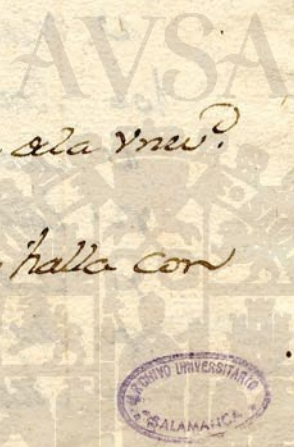 AVSA
ala Vniu.d
halla con
ARCHIVO UNIVERSITARIO
SALAMANCA